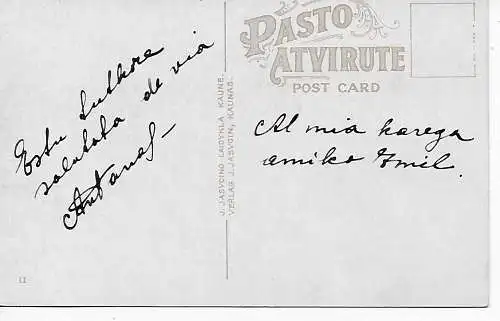 PASTO
ATVIRUTE
POST CARD
Estu
salutata de via
Antanas
J. JASVOINO LEIDYKLA KAUNE.
VERLAG J. JASVOIN, KAUNAS.
Al mia karega
amiko Emil.
11